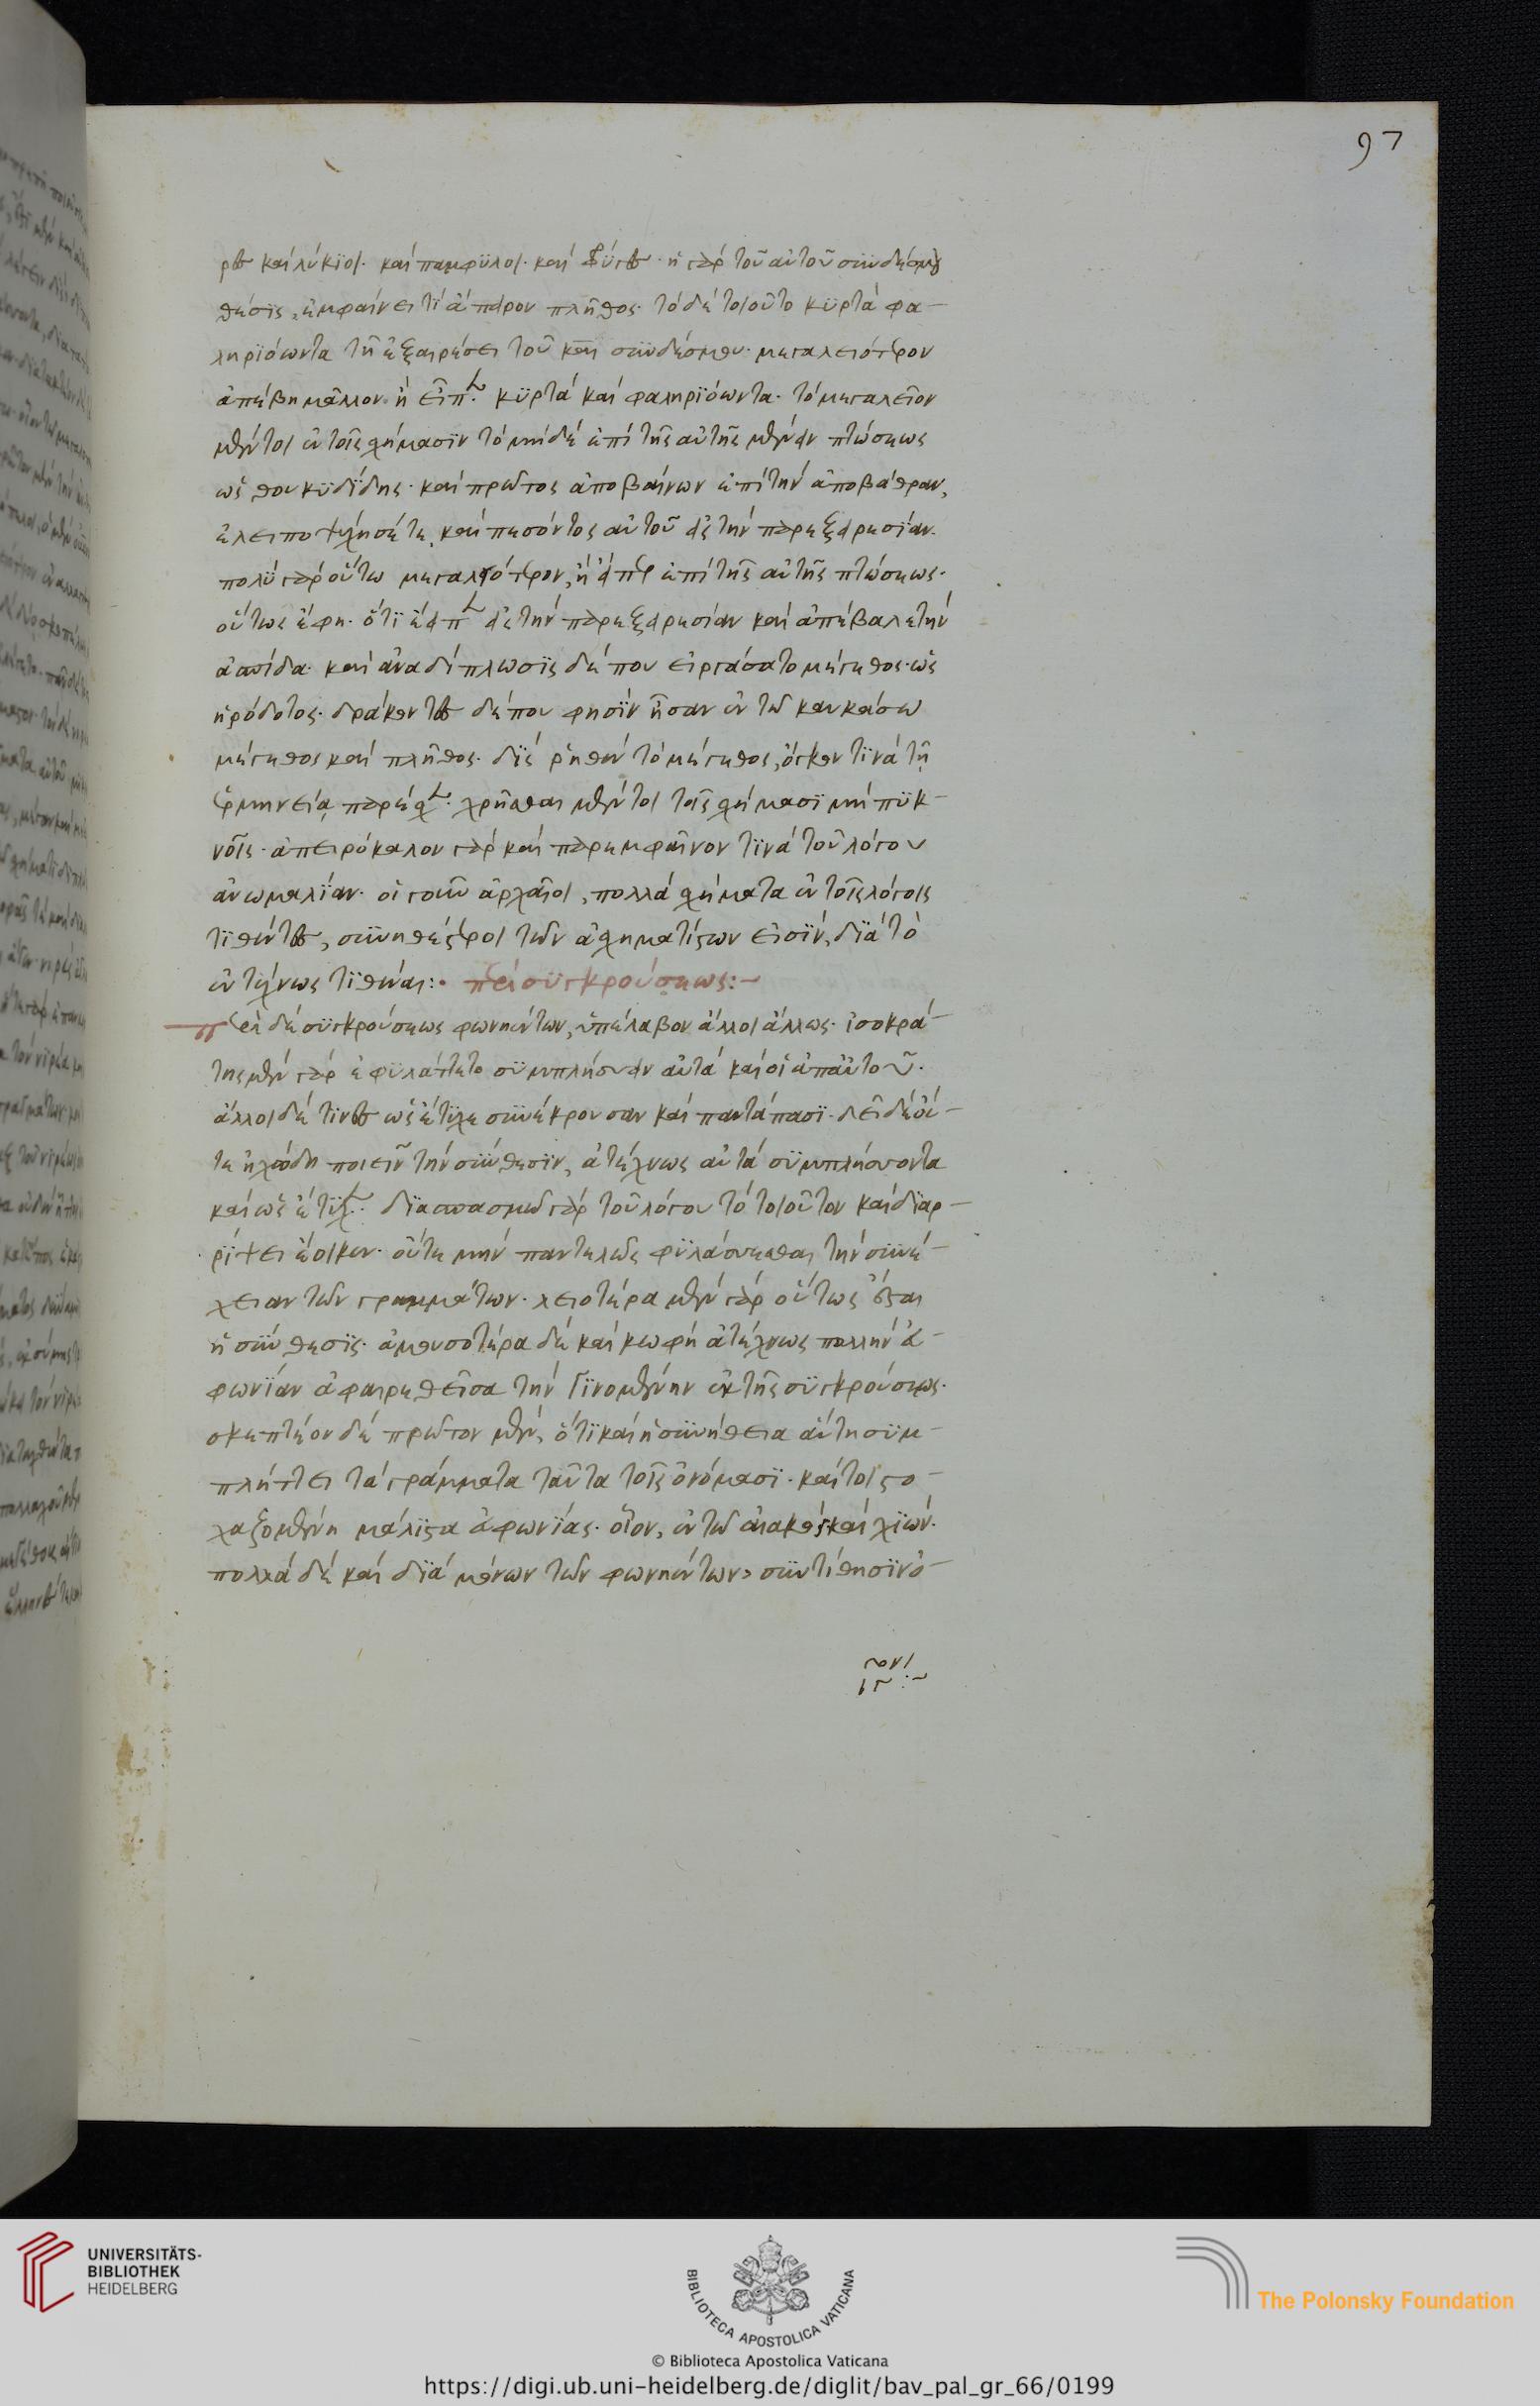 97
ρες καὶ λύκϊοι· καὶ παμφϋλοι· καὶ φύγες· ἡ γὰρ τοῦ αὐτοῦ σϋνδέσμου
θέσϊς, ἐμφαίνει τὶ ἄπειρον πλῆθος· τὸ δὲ τοιοῦτο κϋρτὰ φα-
ληρϊόωντα τῆ ἐξαιρέσει τοῦ καὶ σϋνδέσμου· μεγαλειότερον
ἀπέβη μᾶλλον· ἢ εἶπεν· κϋρτὰ καὶ φαληρϊόωντα· τὸ μεγαλεῖον
μέντοι ἐν τοῖς σχήμασϊν τὸ μηδὲ ἐπὶ τῆς αὐτῆς μένειν πτώσεως
ὡς θουκϋδίδης· καὶ πρῶτος ἀποβαίνων ἐπὶ τὴν ἀποβάθραν,
ἐλειποψύχησέ τε, καὶ πεσόντος αὐτοῦ εἰς τὴν παρεξειρεσίαν·
πολὺ γὰρ οὕτω μεγαλειότερον, ἢ εἴπερ ἐπὶ τῆς αὐτῆς πτώσεως·
οὕτως ἔφη· ὅτϊ ἔπεσεν εἰς τὴν παρεξειρεσίαν καὶ ἀπέβαλε τὴν
ἀσπίδα· καὶ ἀναδίπλωσϊς δέ που εἰργάσατο μέγεθος· ὡς
ἡρόδοτος· δράκοντες δέ που φησὶν ἦσαν ἐν τῶ καυκάσω
μέγεθος καὶ πλῆθος· δὶς ῥηθὲν τὸ μέγεθος, ὄγκον τϊνὰ τῇ
ἑρμηνείᾳ παρέσχεν· χρῆσθαι μέντοι τοῖς σχήμασϊ μὴ πϋκ-
νοῖς· ἀπειρόκαλον γὰρ καὶ παρεμφαῖνον τϊνὰ τοῦ λόγου
ἀνωμαλίαν· οἱ γοῦν ἀρχαῖοι, πολλὰ σχήματα ἐν τοῖς λόγοις
τϊθέντες, σϋνηθέστεροι τῶν ἀσχηματίστων εἰσὶν, δϊὰ τὸ
ἐντέχνως τϊθέναι:· περὶ σϋγκρούσεως:-
περὶ δὲ σϋγκρούσεως φωνηέντων, ὑπέλαβον ἄλλοι ἄλλως· ἰσοκρά-
της μὲν γὰρ ἐφϋλάττετο σϋμπλήσσειν αὐτὰ καὶ οἱ ἀπ' αὐτοῦ·
ἄλλοι δέ τϊνες ὡς ἔτϋχε σϋνέκρουσαν καὶ παντάπασϊ· δεῖ δὲ οὔ-
τε ἠχώδη ποιεῖν τὴν σύνθεσϊν, ἀτέχνως αὐτὰ σϋμπλήσσοντα
καὶ ὡς ἔτϋχεν· δϊασπασμῶ γὰρ τοῦ λόγου τὸ τοιοῦτον καὶ δϊαρ-
ρίψει ἔοικεν· οὔτε μὴν παντελῶς φϋλάσσεσθαι τὴν σϋνέ-
χειαν τῶν γραμμάτων· λειοτέρα μὲν γὰρ οὕτως ἔσται
ἡ σύνθεσϊς· ἀμουσοτέρα δὲ καὶ κωφὴ ἀτέχνως πολλὴν εὐ-
φωνίαν ἀφαιρεθεῖσα τὴν γϊνομένην ἐκ τῆς σϋγκρούσεως·
σκεπτέον δὲ πρῶτον μὲν, ὅτϊ καὶ ἡ σϋνήθεια αὕτη σϋμ-
πλήττει τὰ γράμματα ταῦτα τοῖς ὀνόμασϊ· καίτοι στο-
χαζομένη μάλϊστα εὐφωνίας· οἷον, ἐν τῶ αἰακὸς καὶ χϊών·
πολλὰ δὲ καὶ δϊὰ μόνων τῶν φωνηέντων, σϋντίθησϊν ὀ-
UNIVERSITÄTS-
BIBLIOTHEK
HEIDELBERG
BIBLIOTECA APOSTOLICA VATICANA
The Polonsky Foundation
© Biblioteca Apostolica Vaticana
https://digi.ub.uni-heidelberg.de/diglit/bav_pal_gr_66/0199